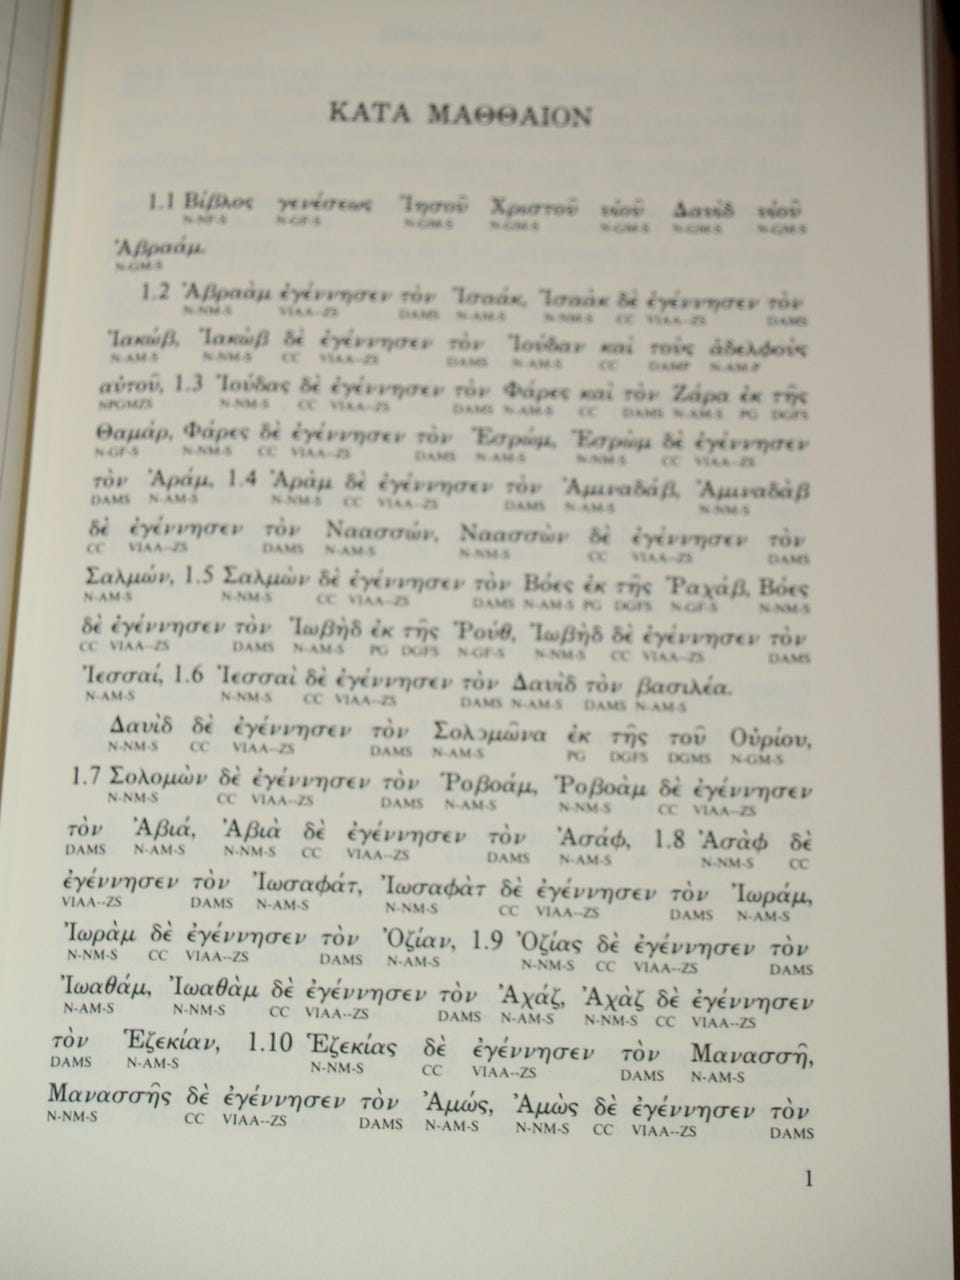 ΚΑΤΑ ΜΑΘΘΑΙΟΝ
1.1 Βίβλος γενέσεως Ἰησοῦ Χριστοῦ υἱοῦ Δαυὶδ υἱοῦ
N-NF-S N-GF-S N-GM-S N-GM-S N-GM-S N-GM-S N-GM-S
Ἀβραάμ.
N-GM-S
1.2 Ἀβραὰμ ἐγέννησεν τὸν Ἰσαάκ, Ἰσαὰκ δὲ ἐγέννησεν τὸν
N-NM-S VIAA--ZS DAMS N-AM-S N-NM-S CC VIAA--ZS DAMS
Ἰακώβ, Ἰακὼβ δὲ ἐγέννησεν τὸν Ἰούδαν καὶ τοὺς ἀδελφοὺς
N-AM-S N-NM-S CC VIAA--ZS DAMS N-AM-S CC DAMP N-AM-P
αὐτοῦ, 1.3 Ἰούδας δὲ ἐγέννησεν τὸν Φάρες καὶ τὸν Ζάρα ἐκ τῆς
NPGMZS N-NM-S CC VIAA--ZS DAMS N-AM-S CC DAMS N-AM-S PG DGFS
Θαμάρ, Φάρες δὲ ἐγέννησεν τὸν Ἑσρώμ, Ἑσρὼμ δὲ ἐγέννησεν
N-GF-S N-NM-S CC VIAA--ZS DAMS N-AM-S N-NM-S CC VIAA--ZS
τὸν Ἀράμ, 1.4 Ἀρὰμ δὲ ἐγέννησεν τὸν Ἀμιναδάβ, Ἀμιναδὰβ
DAMS N-AM-S N-NM-S CC VIAA--ZS DAMS N-AM-S N-NM-S
δὲ ἐγέννησεν τὸν Ναασσών, Ναασσὼν δὲ ἐγέννησεν τὸν
CC VIAA--ZS DAMS N-AM-S N-NM-S CC VIAA--ZS DAMS
Σαλμών, 1.5 Σαλμὼν δὲ ἐγέννησεν τὸν Βόες ἐκ τῆς Ῥαχάβ, Βόες
N-AM-S N-NM-S CC VIAA--ZS DAMS N-AM-S PG DGFS N-GF-S N-NM-S
δὲ ἐγέννησεν τὸν Ἰωβὴδ ἐκ τῆς Ῥούθ, Ἰωβὴδ δὲ ἐγέννησεν τὸν
CC VIAA--ZS DAMS N-AM-S PG DGFS N-GF-S N-NM-S CC VIAA--ZS DAMS
Ἰεσσαί, 1.6 Ἰεσσαὶ δὲ ἐγέννησεν τὸν Δαυὶδ τὸν βασιλέα.
N-AM-S N-NM-S CC VIAA--ZS DAMS N-AM-S DAMS N-AM-S
Δαυὶδ δὲ ἐγέννησεν τὸν Σολομῶνα ἐκ τῆς τοῦ Οὐρίου,
N-NM-S CC VIAA--ZS DAMS N-AM-S PG DGFS DGMS N-GM-S
1.7 Σολομὼν δὲ ἐγέννησεν τὸν Ῥοβοάμ, Ῥοβοὰμ δὲ ἐγέννησεν
N-NM-S CC VIAA--ZS DAMS N-AM-S N-NM-S CC VIAA--ZS
τὸν Ἀβιά, Ἀβιὰ δὲ ἐγέννησεν τὸν Ἀσάφ, 1.8 Ἀσὰφ δὲ
DAMS N-AM-S N-NM-S CC VIAA--ZS DAMS N-AM-S N-NM-S CC
ἐγέννησεν τὸν Ἰωσαφάτ, Ἰωσαφὰτ δὲ ἐγέννησεν τὸν Ἰωράμ,
VIAA--ZS DAMS N-AM-S N-NM-S CC VIAA--ZS DAMS N-AM-S
Ἰωρὰμ δὲ ἐγέννησεν τὸν Ὀζίαν, 1.9 Ὀζίας δὲ ἐγέννησεν τὸν
N-NM-S CC VIAA--ZS DAMS N-AM-S N-NM-S CC VIAA--ZS DAMS
Ἰωαθάμ, Ἰωαθὰμ δὲ ἐγέννησεν τὸν Ἀχάζ, Ἀχὰζ δὲ ἐγέννησεν
N-AM-S N-NM-S CC VIAA--ZS DAMS N-AM-S N-NM-S CC VIAA--ZS
τὸν Ἑζεκίαν, 1.10 Ἑζεκίας δὲ ἐγέννησεν τὸν Μανασσῆ,
DAMS N-AM-S N-NM-S CC VIAA--ZS DAMS N-AM-S
Μανασσῆς δὲ ἐγέννησεν τὸν Ἀμώς, Ἀμὼς δὲ ἐγέννησεν τὸν
N-NM-S CC VIAA--ZS DAMS N-AM-S N-NM-S CC VIAA--ZS DAMS
1